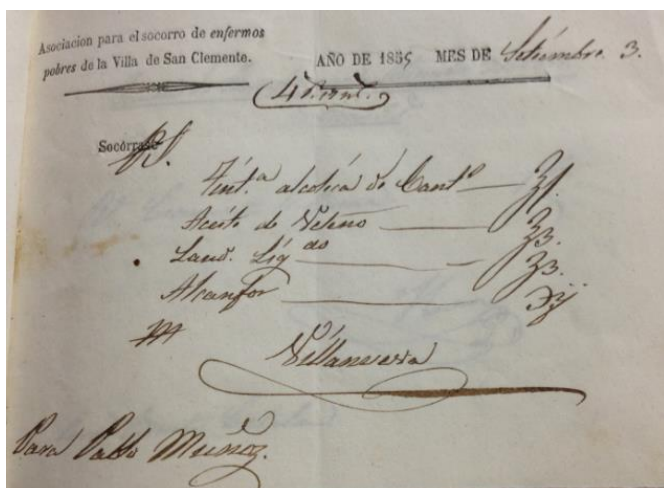 Asociacion para el socorro de enfermos
pobres de la Villa de San Clemente.
AÑO DE 1855 MES DE Setiembre 3.
Socórrase
Tint.ª alcolica de Cant.º ʒ1.
Aceite de Veleño ʒ3.
Laud. Liq.do ʒ3.
Alcanfor ℈ij
M
Villanueva
Para Pablo Muñoz.